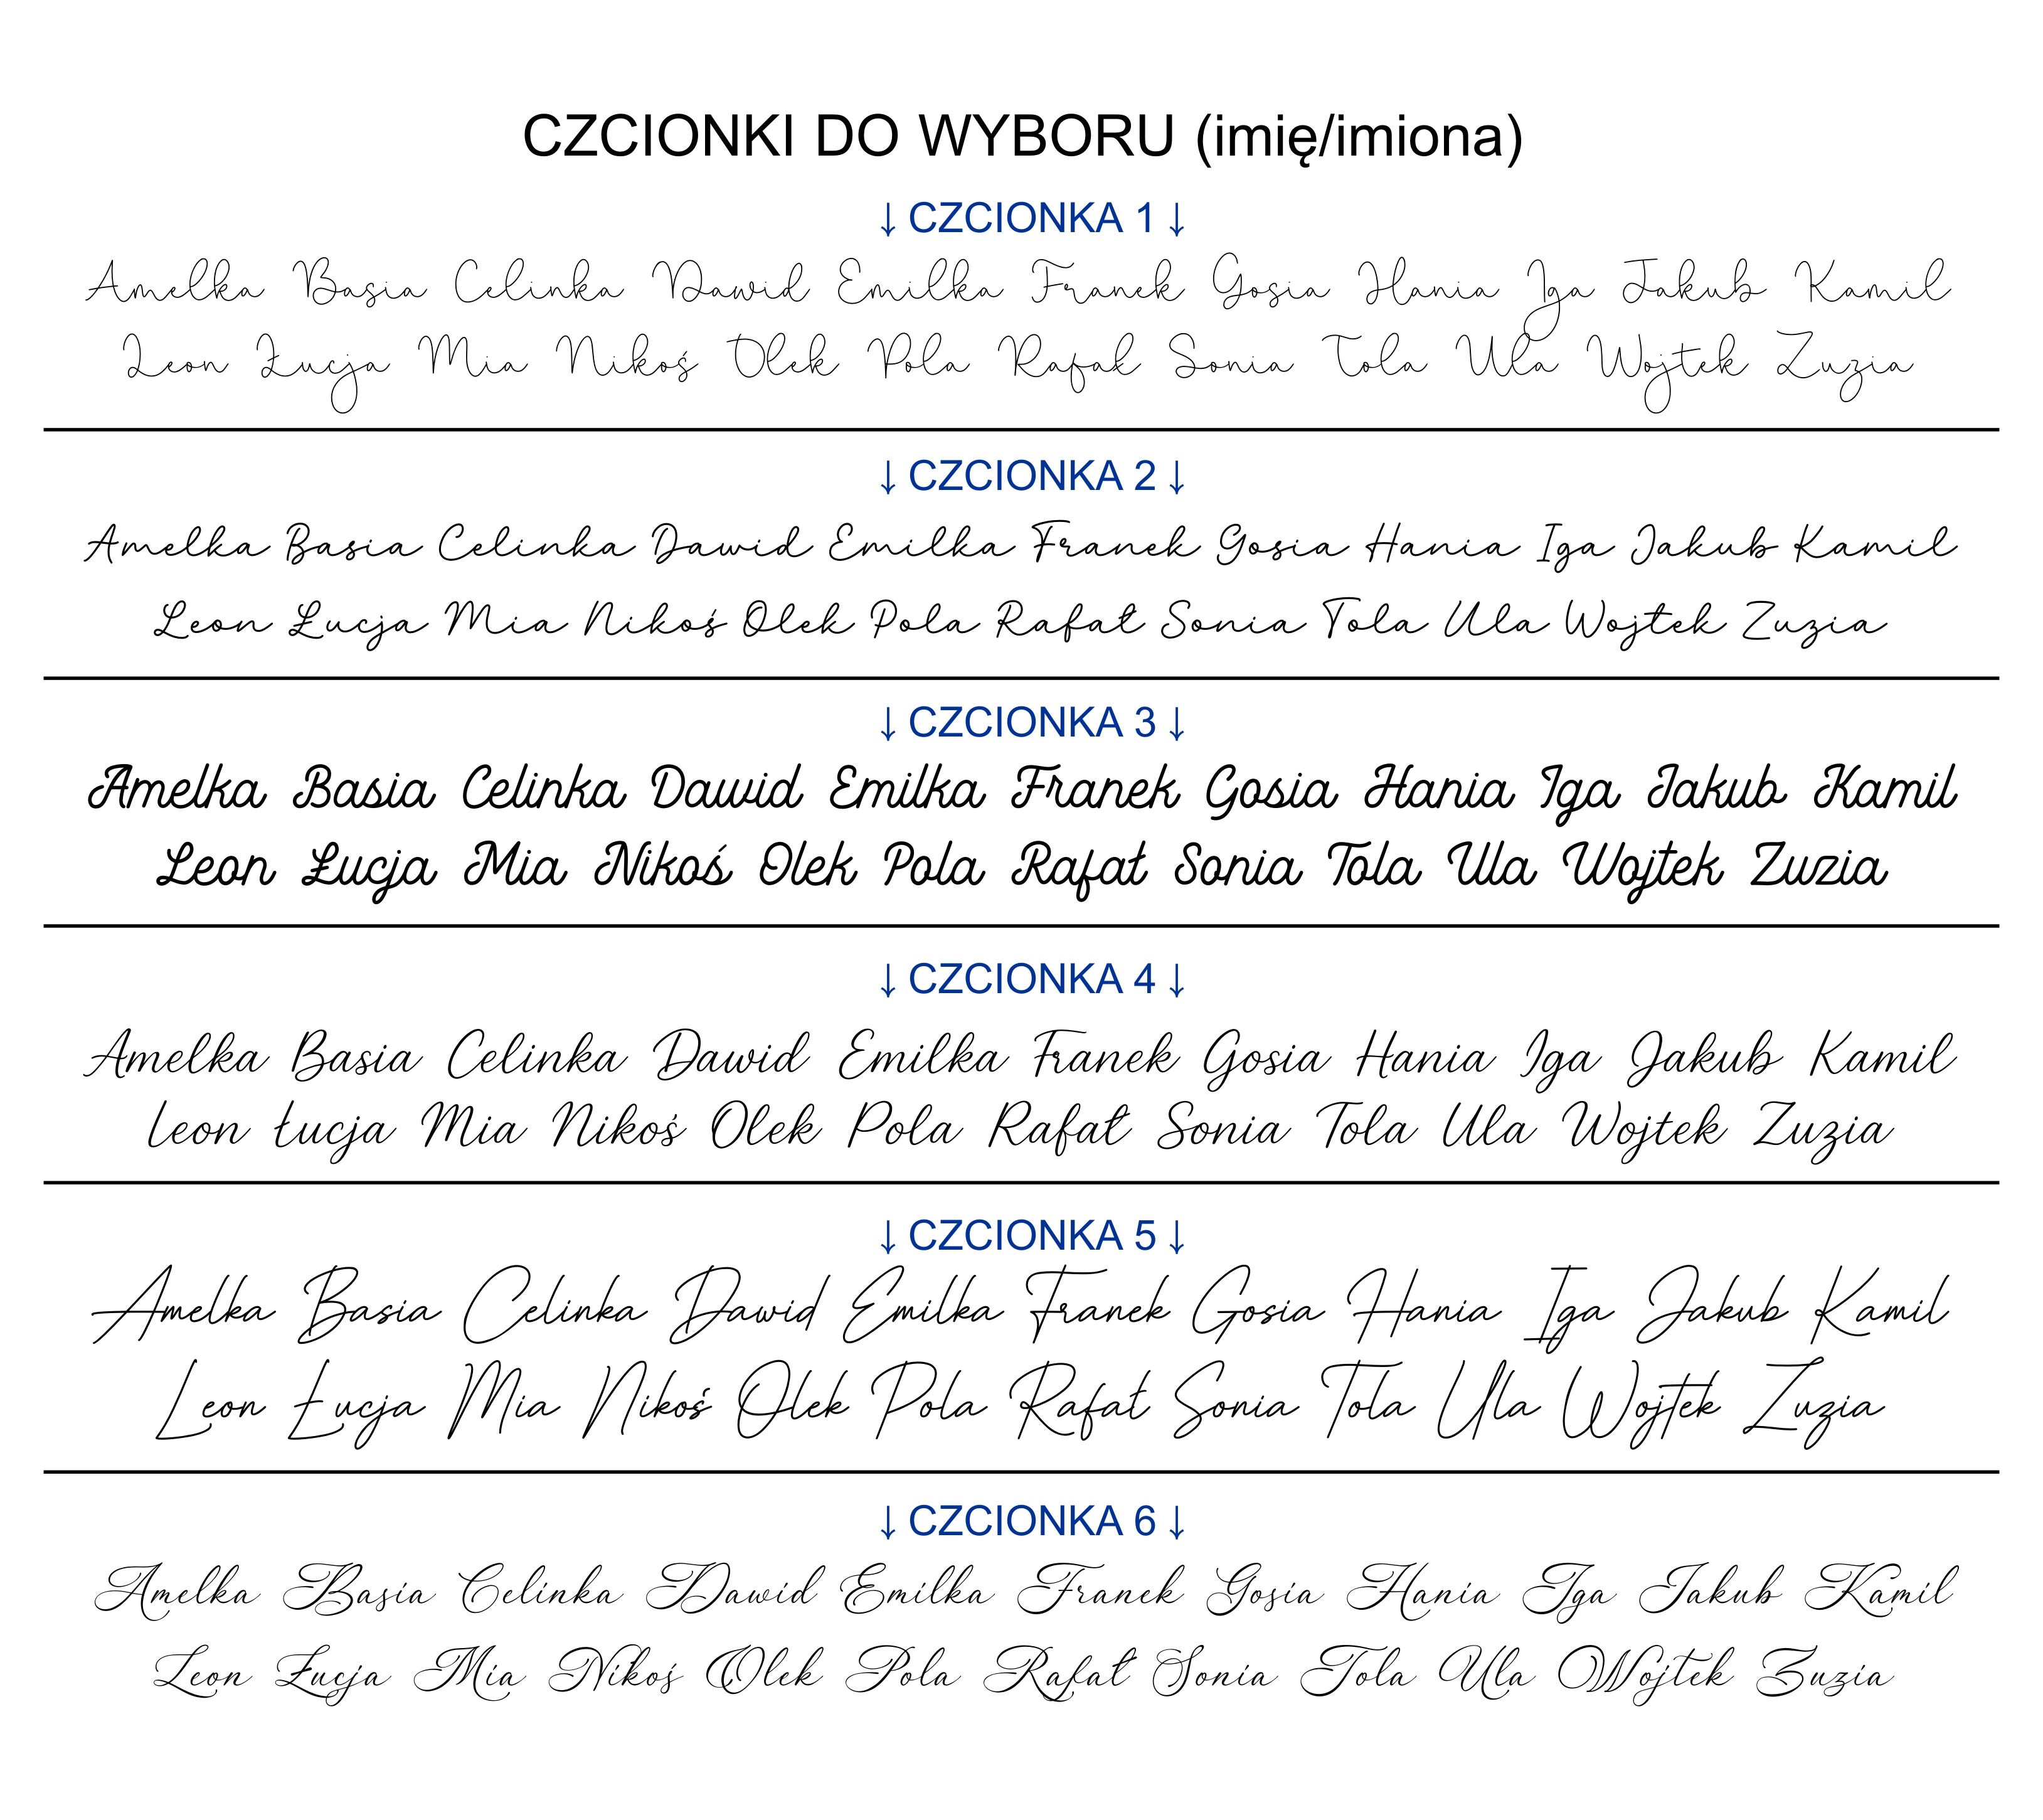 CZCIONKI DO WYBORU (imię/imiona)
↓ CZCIONKA 1 ↓
Amelka Basia Celinka Dawid Emilka Franek Gosia Hania Iga Jakub Kamil
Leon Łucja Mia Nikoś Olek Pola Rafał Sonia Tola Ula Wojtek Zuzia
↓ CZCIONKA 2 ↓
Amelka Basia Celinka Dawid Emilka Franek Gosia Hania Iga Jakub Kamil
Leon Łucja Mia Nikoś Olek Pola Rafał Sonia Tola Ula Wojtek Zuzia
↓ CZCIONKA 3 ↓
Amelka Basia Celinka Dawid Emilka Franek Gosia Hania Iga Jakub Kamil
Leon Łucja Mia Nikoś Olek Pola Rafał Sonia Tola Ula Wojtek Zuzia
↓ CZCIONKA 4 ↓
Amelka Basia Celinka Dawid Emilka Franek Gosia Hania Iga Jakub Kamil
Leon Łucja Mia Nikoś Olek Pola Rafał Sonia Tola Ula Wojtek Zuzia
↓ CZCIONKA 5 ↓
Amelka Basia Celinka Dawid Emilka Franek Gosia Hania Iga Jakub Kamil
Leon Łucja Mia Nikoś Olek Pola Rafał Sonia Tola Ula Wojtek Zuzia
↓ CZCIONKA 6 ↓
Amelka Basia Celinka Dawid Emilka Franek Gosia Hania Iga Jakub Kamil
Leon Łucja Mia Nikoś Olek Pola Rafał Sonia Tola Ula Wojtek Zuzia